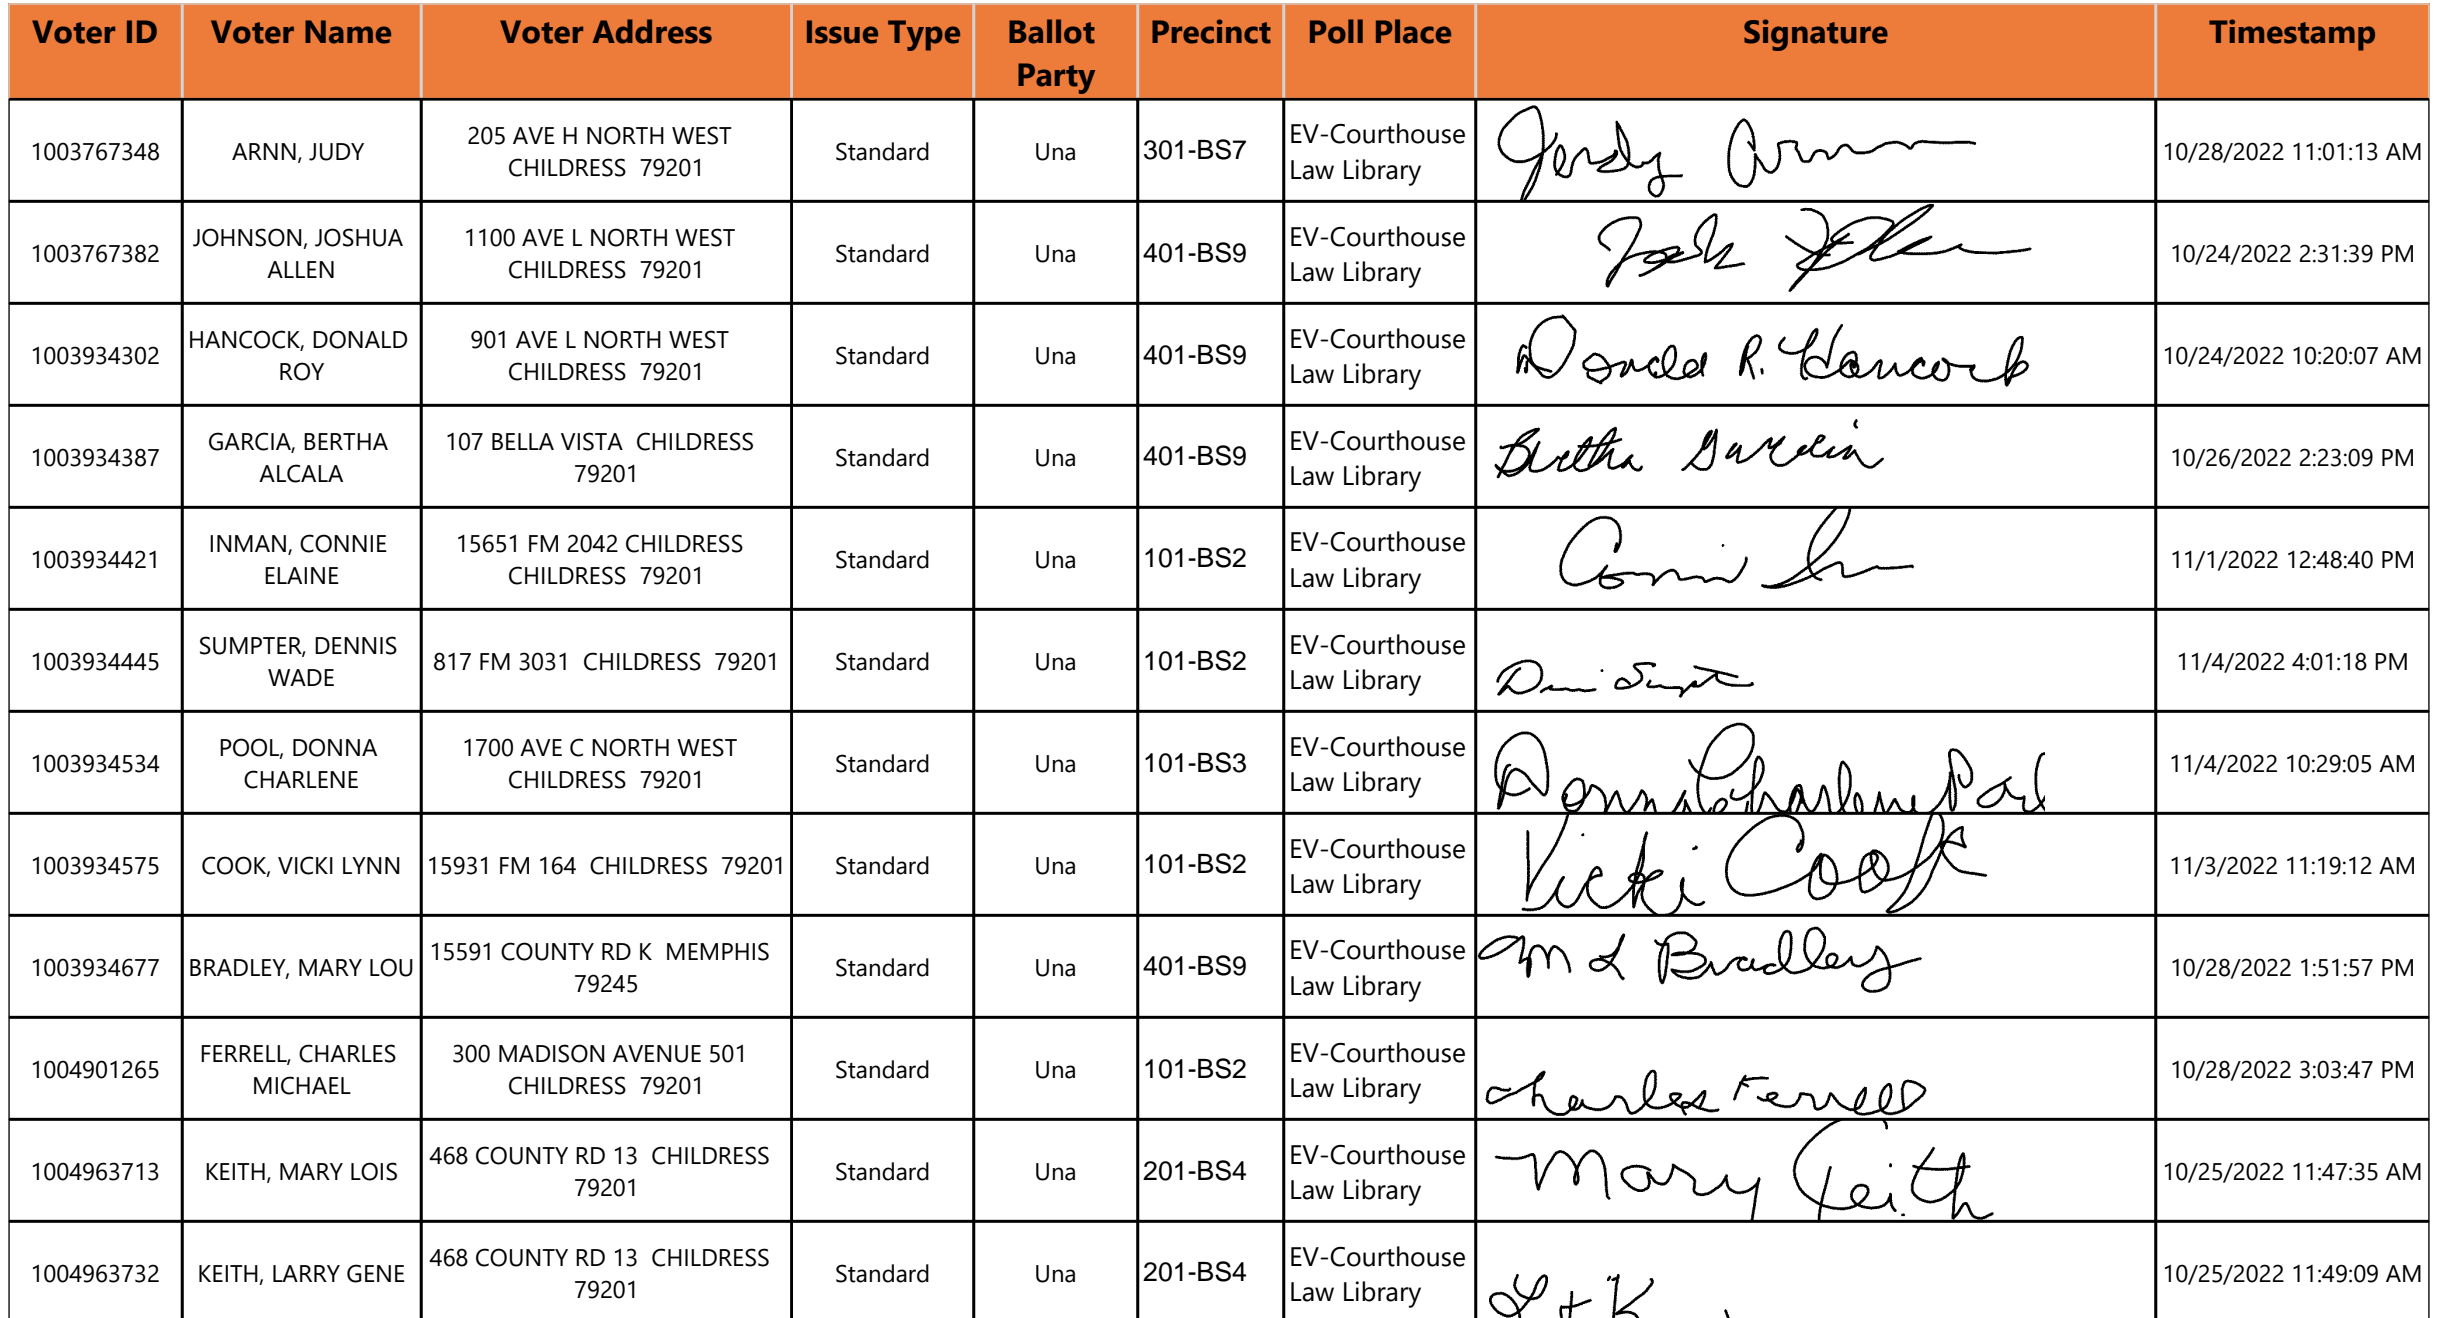 Voter ID Voter Name Voter Address Issue Type Ballot Party Precinct Poll Place Signature Timestamp
1003767348 ARNN, JUDY 205 AVE H NORTH WEST CHILDRESS 79201 Standard Una 301-BS7 EV-Courthouse Law Library Judy Arnn 10/28/2022 11:01:13 AM
1003767382 JOHNSON, JOSHUA ALLEN 1100 AVE L NORTH WEST CHILDRESS 79201 Standard Una 401-BS9 EV-Courthouse Law Library Josh 10/24/2022 2:31:39 PM
1003934302 HANCOCK, DONALD ROY 901 AVE L NORTH WEST CHILDRESS 79201 Standard Una 401-BS9 EV-Courthouse Law Library Donald R. Hancock 10/24/2022 10:20:07 AM
1003934387 GARCIA, BERTHA ALCALA 107 BELLA VISTA CHILDRESS 79201 Standard Una 401-BS9 EV-Courthouse Law Library Bertha Garcia 10/26/2022 2:23:09 PM
1003934421 INMAN, CONNIE ELAINE 15651 FM 2042 CHILDRESS CHILDRESS 79201 Standard Una 101-BS2 EV-Courthouse Law Library Connie 11/1/2022 12:48:40 PM
1003934445 SUMPTER, DENNIS WADE 817 FM 3031 CHILDRESS 79201 Standard Una 101-BS2 EV-Courthouse Law Library 11/4/2022 4:01:18 PM
1003934534 POOL, DONNA CHARLENE 1700 AVE C NORTH WEST CHILDRESS 79201 Standard Una 101-BS3 EV-Courthouse Law Library Donna Charlene Pool 11/4/2022 10:29:05 AM
1003934575 COOK, VICKI LYNN 15931 FM 164 CHILDRESS 79201 Standard Una 101-BS2 EV-Courthouse Law Library Vicki Cook 11/3/2022 11:19:12 AM
1003934677 BRADLEY, MARY LOU 15591 COUNTY RD K MEMPHIS 79245 Standard Una 401-BS9 EV-Courthouse Law Library M L Bradley 10/28/2022 1:51:57 PM
1004901265 FERRELL, CHARLES MICHAEL 300 MADISON AVENUE 501 CHILDRESS 79201 Standard Una 101-BS2 EV-Courthouse Law Library Charles Ferrell 10/28/2022 3:03:47 PM
1004963713 KEITH, MARY LOIS 468 COUNTY RD 13 CHILDRESS 79201 Standard Una 201-BS4 EV-Courthouse Law Library Mary Keith 10/25/2022 11:47:35 AM
1004963732 KEITH, LARRY GENE 468 COUNTY RD 13 CHILDRESS 79201 Standard Una 201-BS4 EV-Courthouse Law Library 10/25/2022 11:49:09 AM